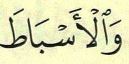 وَٱلْأَسْبَاطَ